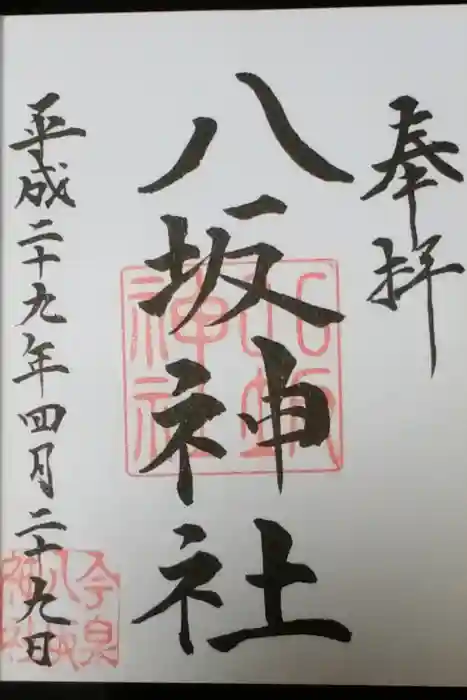 奉拝
八坂神社
八坂神社
平成二十九年四月二十九日
今泉
八坂
神社